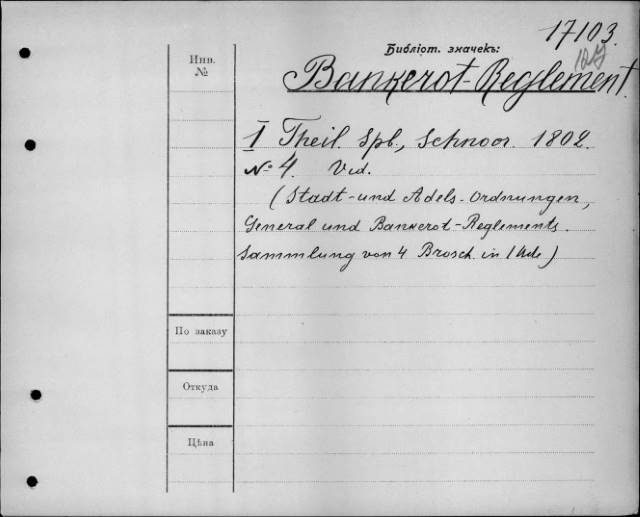 17103.
Библіот. значекъ:
Инв.
№
Bankerot-Reglement.
I Theil. Spb., Schnoor. 1802.
№ 4. Vid.
(Stadt-und Adels-Ordnungen,
General und Bankerot-Reglements.
Sammlung von 4 Brosch. in 1
По заказу
Откуда
Цѣна